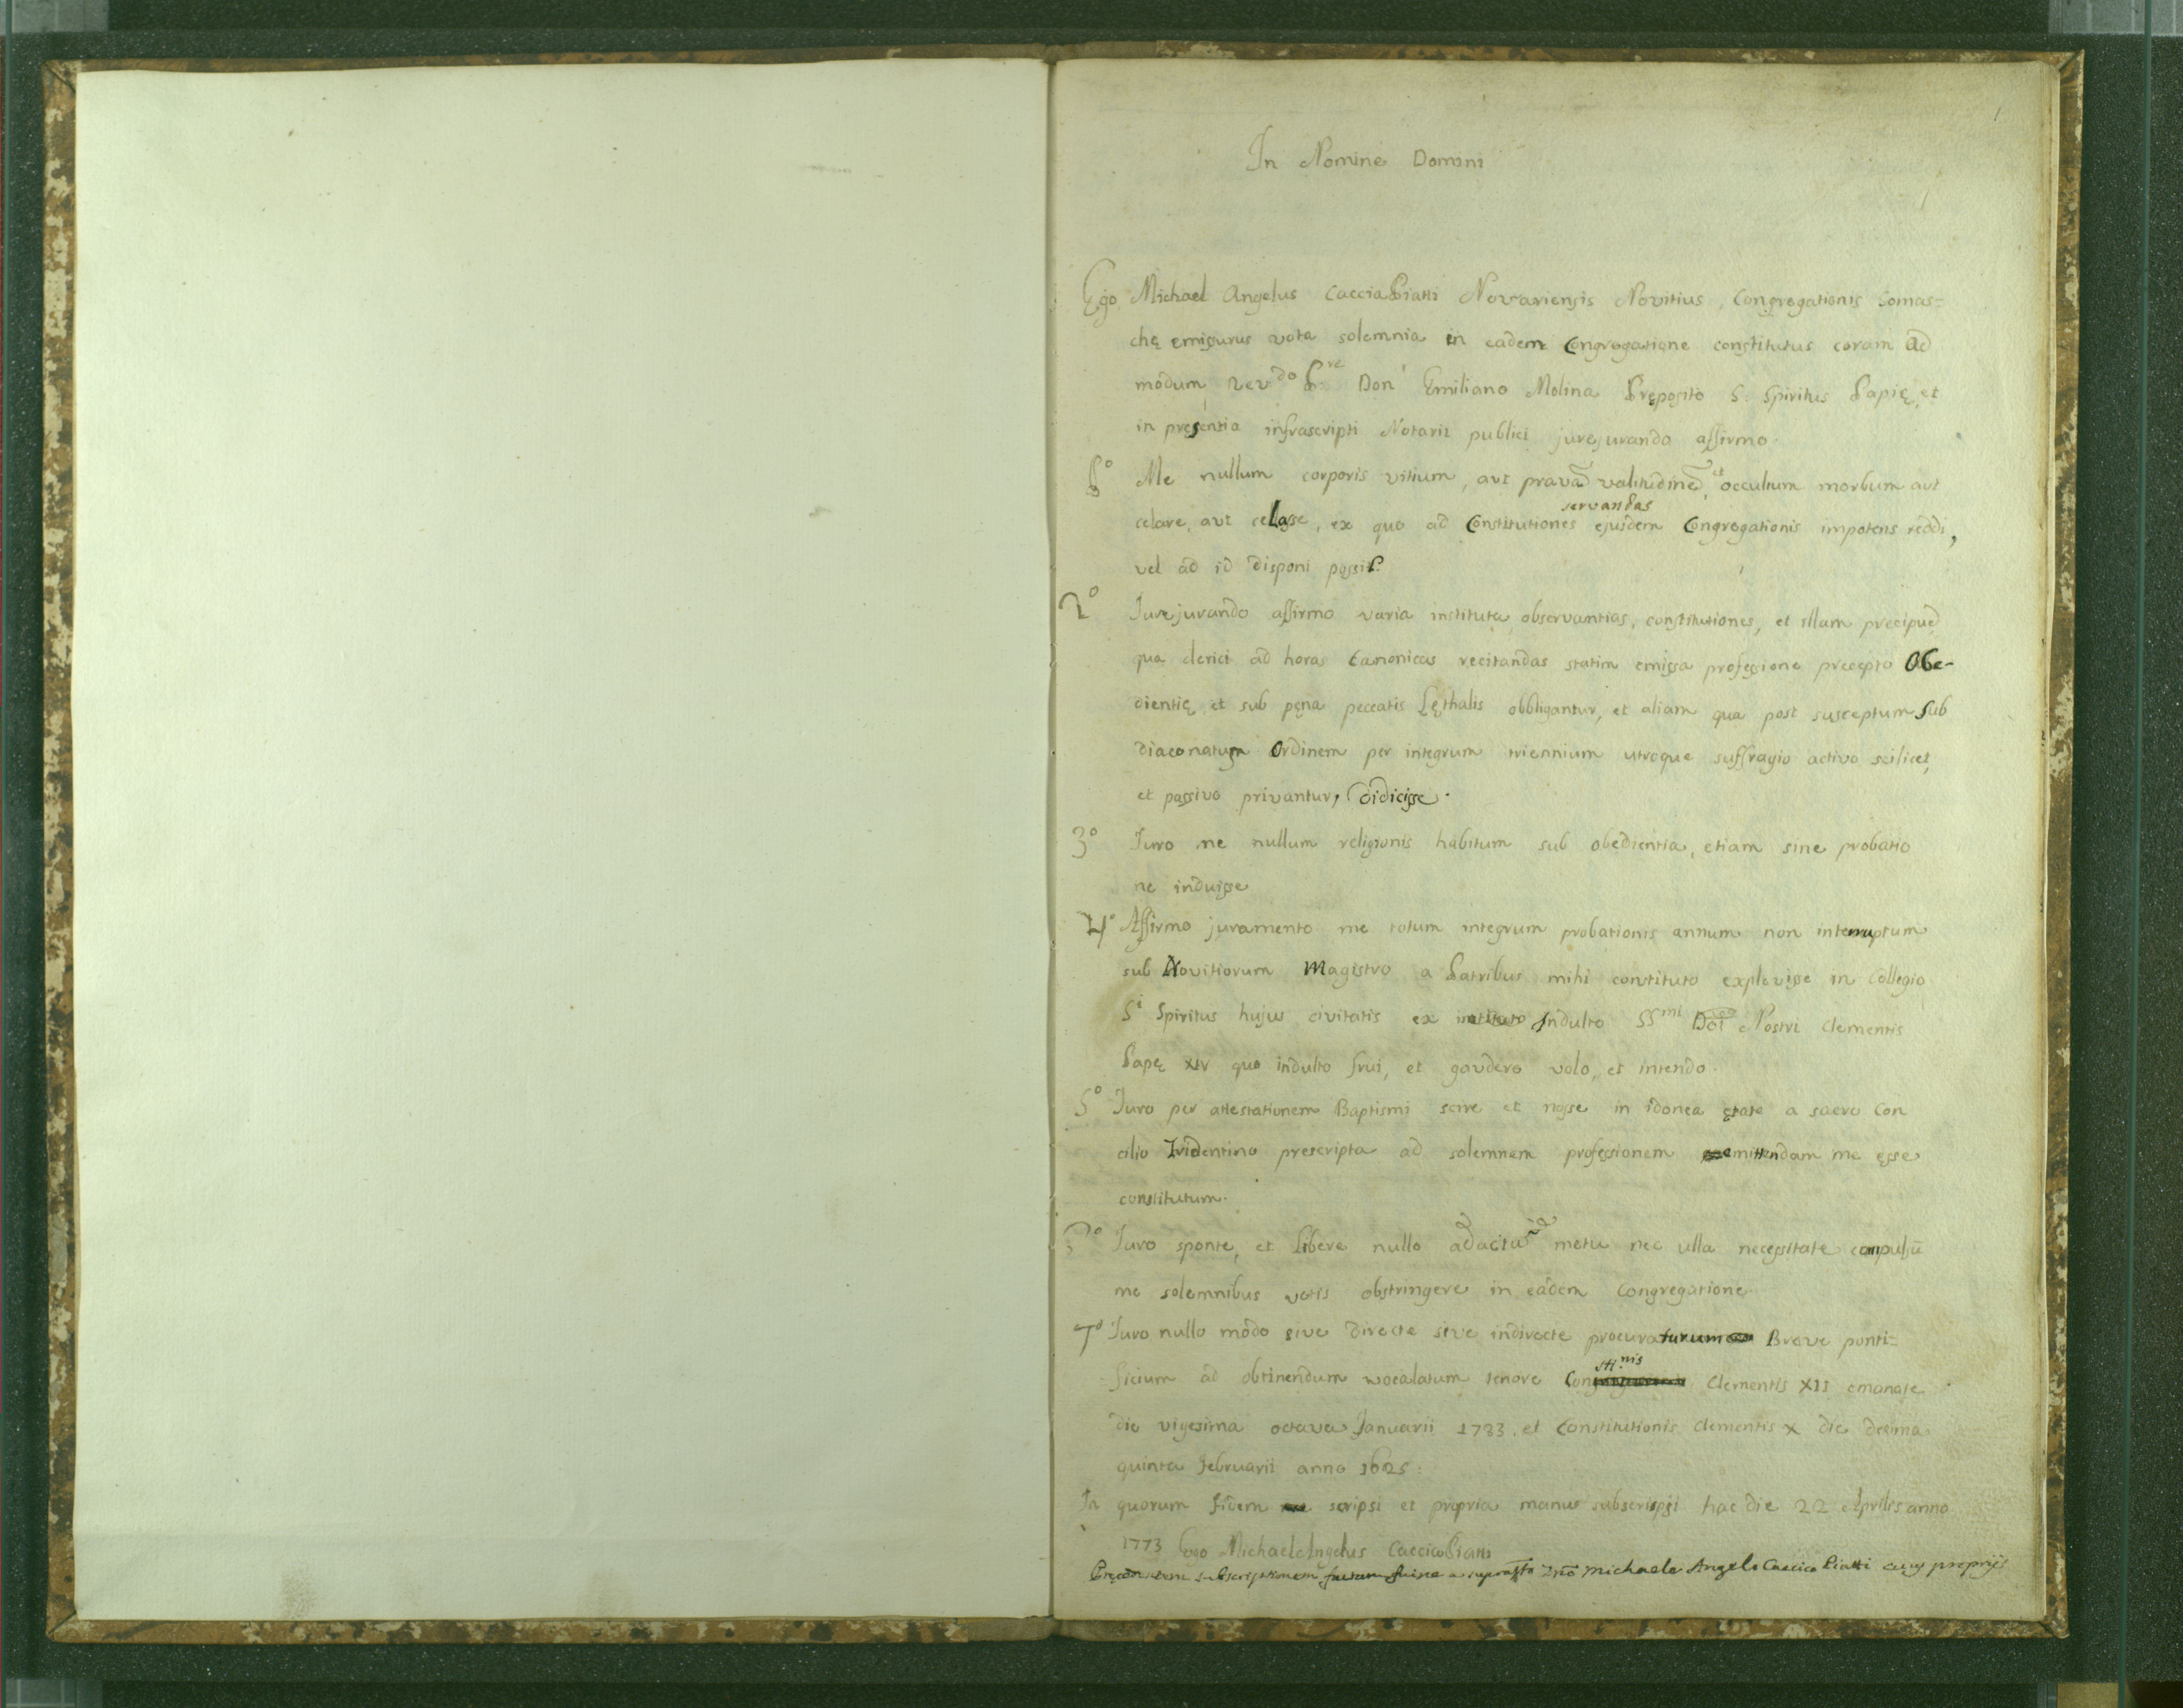 1
In Nomine Domini
Ego Michael Angelus CacciaPiatti Novariensis Novitius, Congregationis Somas=
chę emissurus vota solemnia in eadem Congregatione constitutus coram Ad
modum Rev.do P.re Don Emiliano Molina Pręposito S. Spiritus Papię, et
in pręsentia infrascripti Notarii publici jurejurando affirmo.
P.o Me nullum corporis vitium, aut pravã valitudinẽ, et occultum morbum aut
servandas
celare, aut celasse, ex quo ad Constitutiones ejusdem Congregationis impotens reddi,
vel ad id disponi possit.
2o Jurejurando affirmo varia instituta, observantias, constitutiones, et illam precipuẽ
qua clerici ad horas Canonicas recitandas statim emissa professione precepto Obe-
dientię, et sub pęna peccatis Lęthalis obbligantur, et aliam qua post susceptum Sub
diaconatum Ordinem per integrum triennium utroque suffragio activo scilicet,
et passivo privantur, didicisse.
3o Juro me nullum religionis habitum sub obedientia, etiam sine probatio
ne induisse
4o Affirmo juramento me totum integrum probationis annum non interruptum
sub Novitiorum Magistro a Patribus mihi constituto explevisse in collegio
Si Spiritus hujus civitatis ex instituto Indulto SSmi Dõi Nostri Clementis
Papę XIV quo indulto frui, et gaudere volo, et intendo.
5o Juro per attestationem Baptismi scire et nosse in idonea ętate a sacro Con
cilio Tridentino prescripta ad solemnem professionem emittendam me esse
constitutum.
Juro sponte, et libere nullo adacta metu nec ulla necessitate compulsũ
me solemnibus votis obstringere in eadem Congregatione
7o Juro nullo modo sive directe sive indirecte procuraturum Breve ponti=
sti.nis
ficium ad obtinendum wocalatum tenore Con Clementis XII emanate
die vigesima octava Januarii 1733. et Constitutionis Clementis X die decima
quinta Februarii anno 1625.
In quorum fidem scripsi et propria manus subscripsi hac die 22 Aprilis anno
1773 Ego MichaelAngelus CacciaPiatti
Pręcedentem subscriptionem factam fuisse a suprasto Dno Michaele Angelo Caccia Piatti cuius proprijs